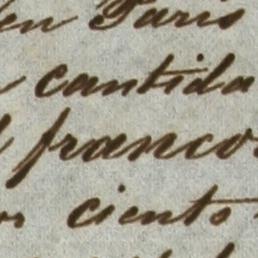 en Paris
cantida
franco
ciento